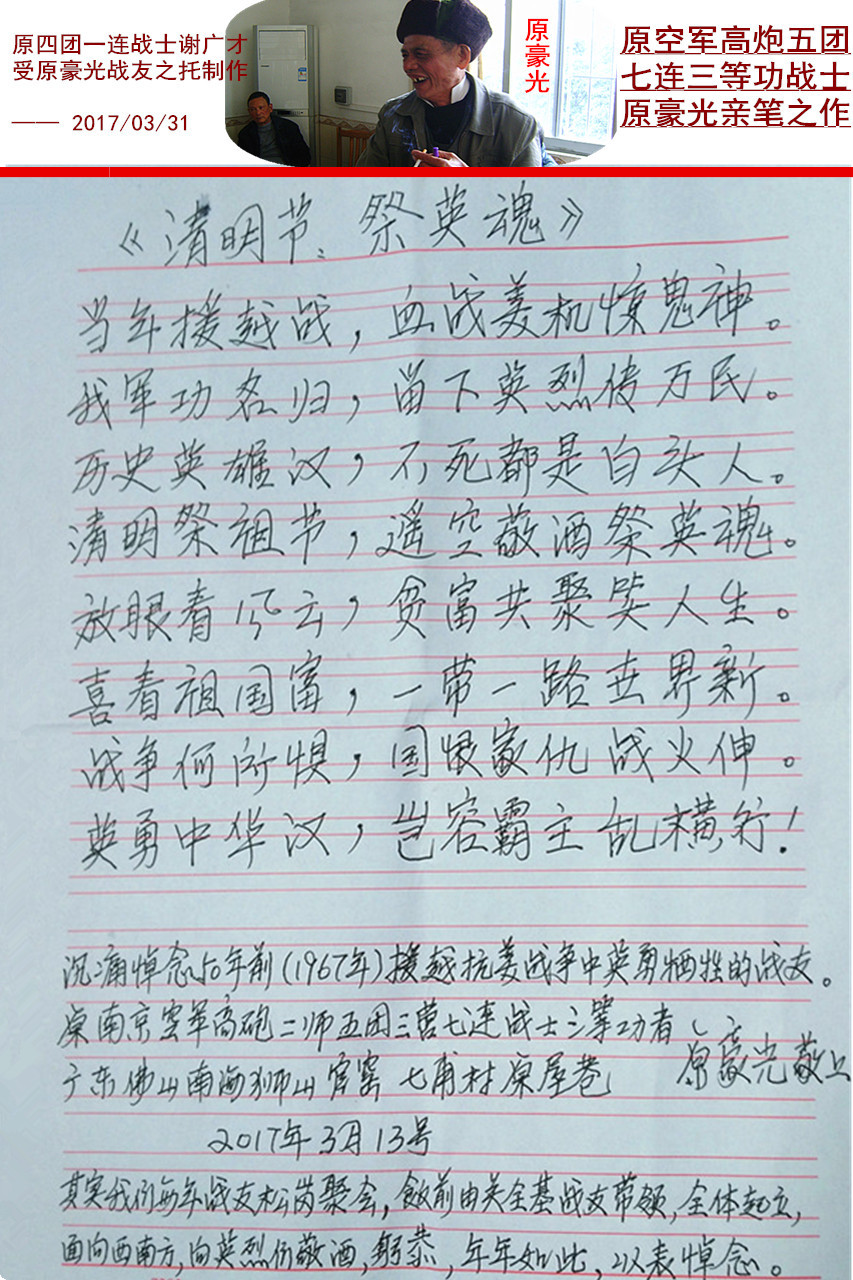 原四团一连战士谢广才
受原豪光战友之托制作
—— 2017/03/31
原豪光
原空军高炮五团
七连三等功战士
原豪光亲笔之作
《清明节、祭英魂》
当年援越战，血战美机惊鬼神。
我军功名归，留下英烈传万民。
历史英雄汉，不死都是白头人。
清明祭祖节，遥空敬酒祭英魂。
放眼看风云，贫富共聚笑人生。
喜看祖国富，一带一路世界新。
战争何所惧，国恨家仇战火伸。
英勇中华汉，岂容霸主乱横行！
沉痛悼念50年前(1967年)援越抗美战争中英勇牺牲的战友。
原南京空军高砲二师五团三营七连战士三等功者
广东佛山南海狮山官窑七甫村原屋巷
原豪光敬上
2017年3月13号
其实我们每年战友松岗聚会，飯前由关全基战友带领，全体起立，
面向西南方，向英烈们敬酒，躬恭，年年如此，以表悼念。